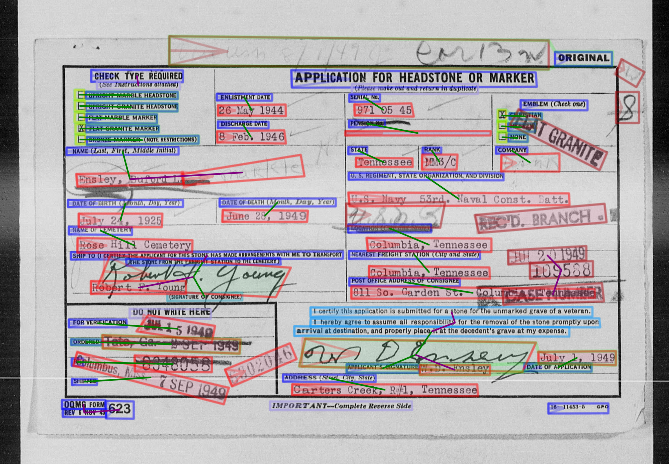 ORIGINAL
CHECK TYPE REQUIRED
(See Instructions attached)
UPRIGHT MARBLE HEADSTONE
UPRIGHT GRANITE HEADSTONE
FLAT MARBLE MARKER
X FLAT GRANITE MARKER
BRONZE MARKER (NOTE RESTRICTIONS)
APPLICATION FOR HEADSTONE OR MARKER
(Please make out and return in duplicate)
ENLISTMENT DATE
26 May 1944
DISCHARGE DATE
8 Feb. 1946
SERIAL NO.
971 05 45
EMBLEM (Check one)
NONE
FLAT GRANITE
NAME (Last, First, Middle Initial)
Ensley,
STATE
Tennessee
RANK
COMPANY
U.S. REGIMENT, STATE ORGANIZATION, AND DIVISION
U.S. Navy 53rd. Naval Const. Batt.
DATE OF BIRTH (Month, Day, Year)
July 24, 1925
DATE OF DEATH (Month, Day, Year)
June 29, 1949
REC'D. BRANCH
NAME OF CEMETERY
Rose Hill Cemetery
Columbia, Tennessee
SHIP TO (I CERTIFY THE APPLICANT FOR THIS STONE HAS MADE ARRANGEMENTS WITH ME TO TRANSPORT
THE STONE FROM THE FREIGHT STATION TO THE CEMETERY)
NEAREST FREIGHT STATION (City and State)
Columbia, Tennessee
109568
Robert L. Young
Robert L. Young
(SIGNATURE OF CONSIGNEE)
POST OFFICE ADDRESS OF CONSIGNEE
811 So. Garden St.
DO NOT WRITE HERE
FOR VERIFICATION
JUL 15 1949
ORDERED
Tate, Ga.
2 SEP 1949
6848058
Columbus, Miss.
SHIPPED
7 SEP 1949
I certify this application is submitted for a stone for the unmarked grave of a veteran.
I hereby agree to assume all responsibility for the removal of the stone promptly upon
arrival at destination, and properly place it at the decedent's grave at my expense.
July 1, 1949
APPLICANT'S SIGNATURE
DATE OF APPLICATION
ADDRESS (Street, City, State)
Carters Creek, R#1, Tennessee
OQMG FORM
REV 8 NOV 45
623
IMPORTANT—Complete Reverse Side
16—11453-6 GPO